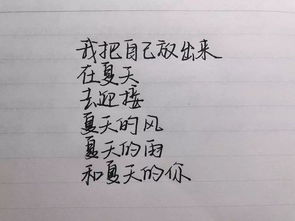 我把自己放出来
在夏天
去迎接
夏天的风
夏天的雨
和夏天的你